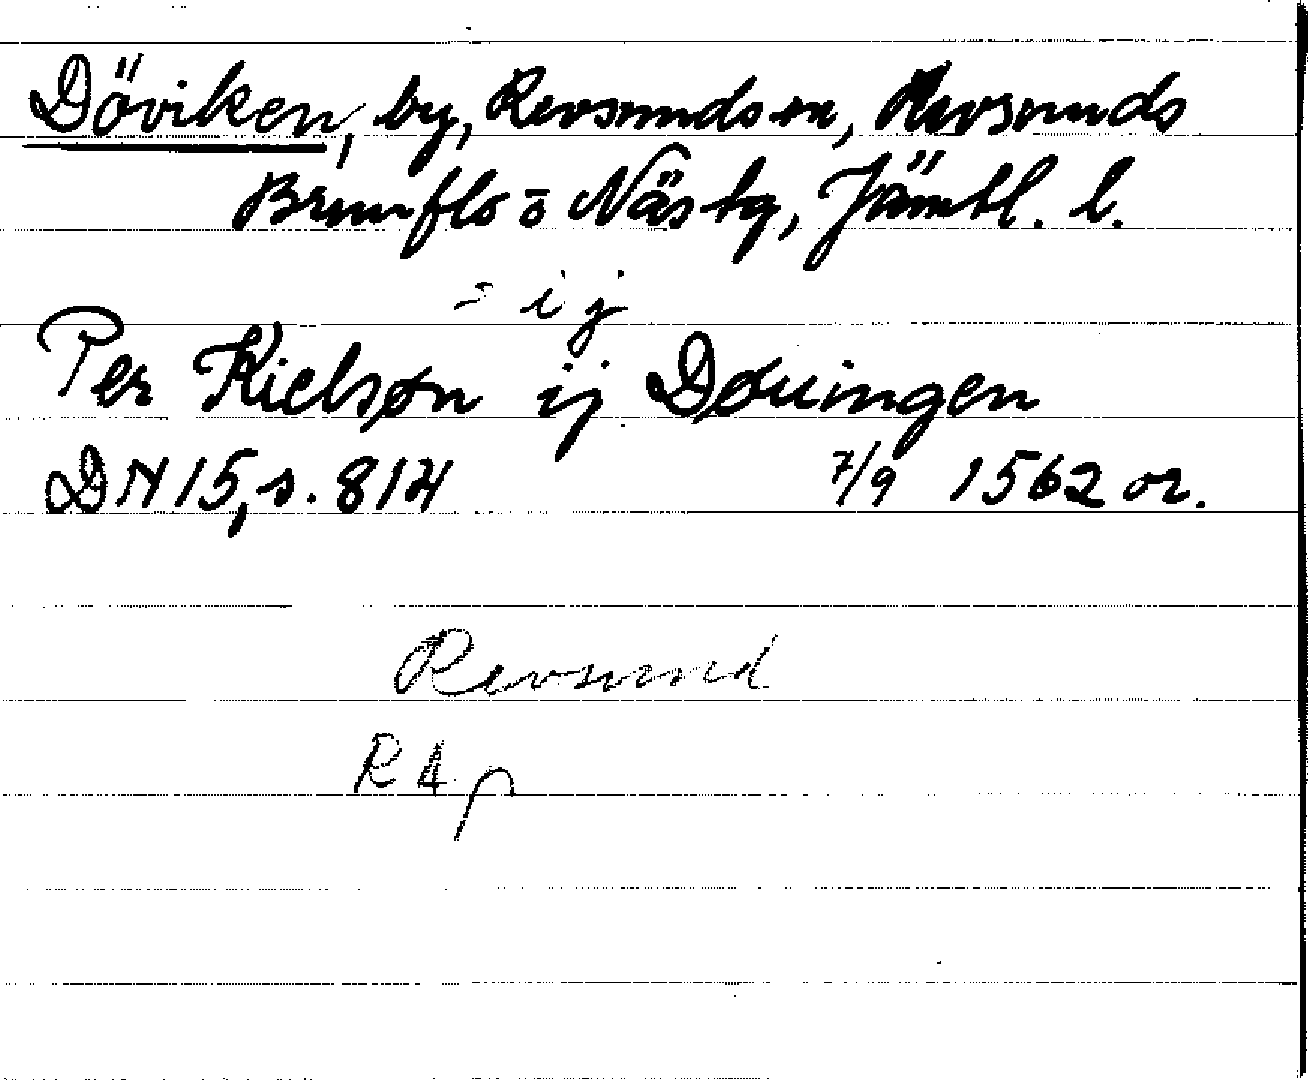 Döviken, by, Revsunds sn, Revsunds
Brunflo o Näs tg, Jämtl. l.
= i j
Per Kielsøn ij Døuingen
DN 15, s. 814 7/9 1562 or.
Revsund
RA